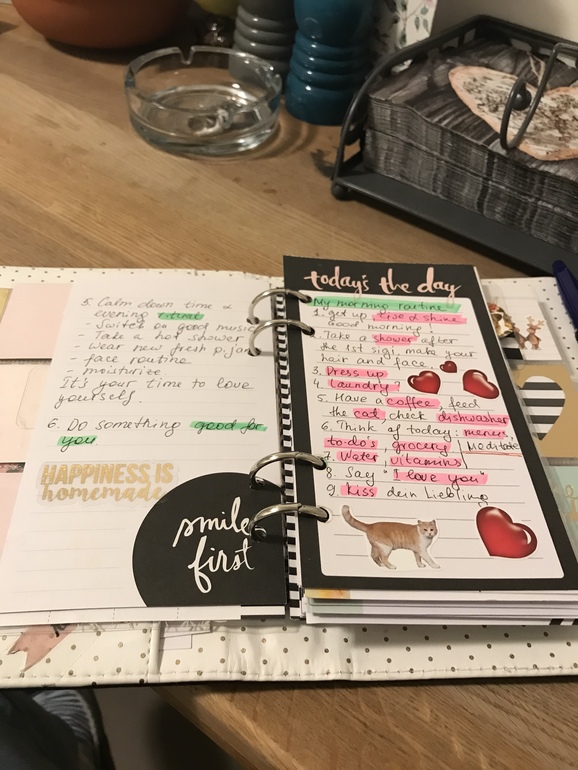 5. Calm down time &
evening ritual
- Switch on good music
- Take a hot shower
- Wear new fresh pijam
- face routine
- moisturize
It's your time to love
yourself.
6. Do something good for
you
HAPPINESS IS
homemade
smile
first
today's the day
My morning routine
1. get up rise & shine
Good morning!
2. Take a shower after
the 1st sigi, make your
hair and face.
3. Dress up
4. Laundry
5. Have a coffee, feed
the cat, check dishwasher
6. Think of today: menue,
to-do's, grocery Meditate
7. Water, vitamins
8. Say "I love you"
9. Kiss dein Liebling